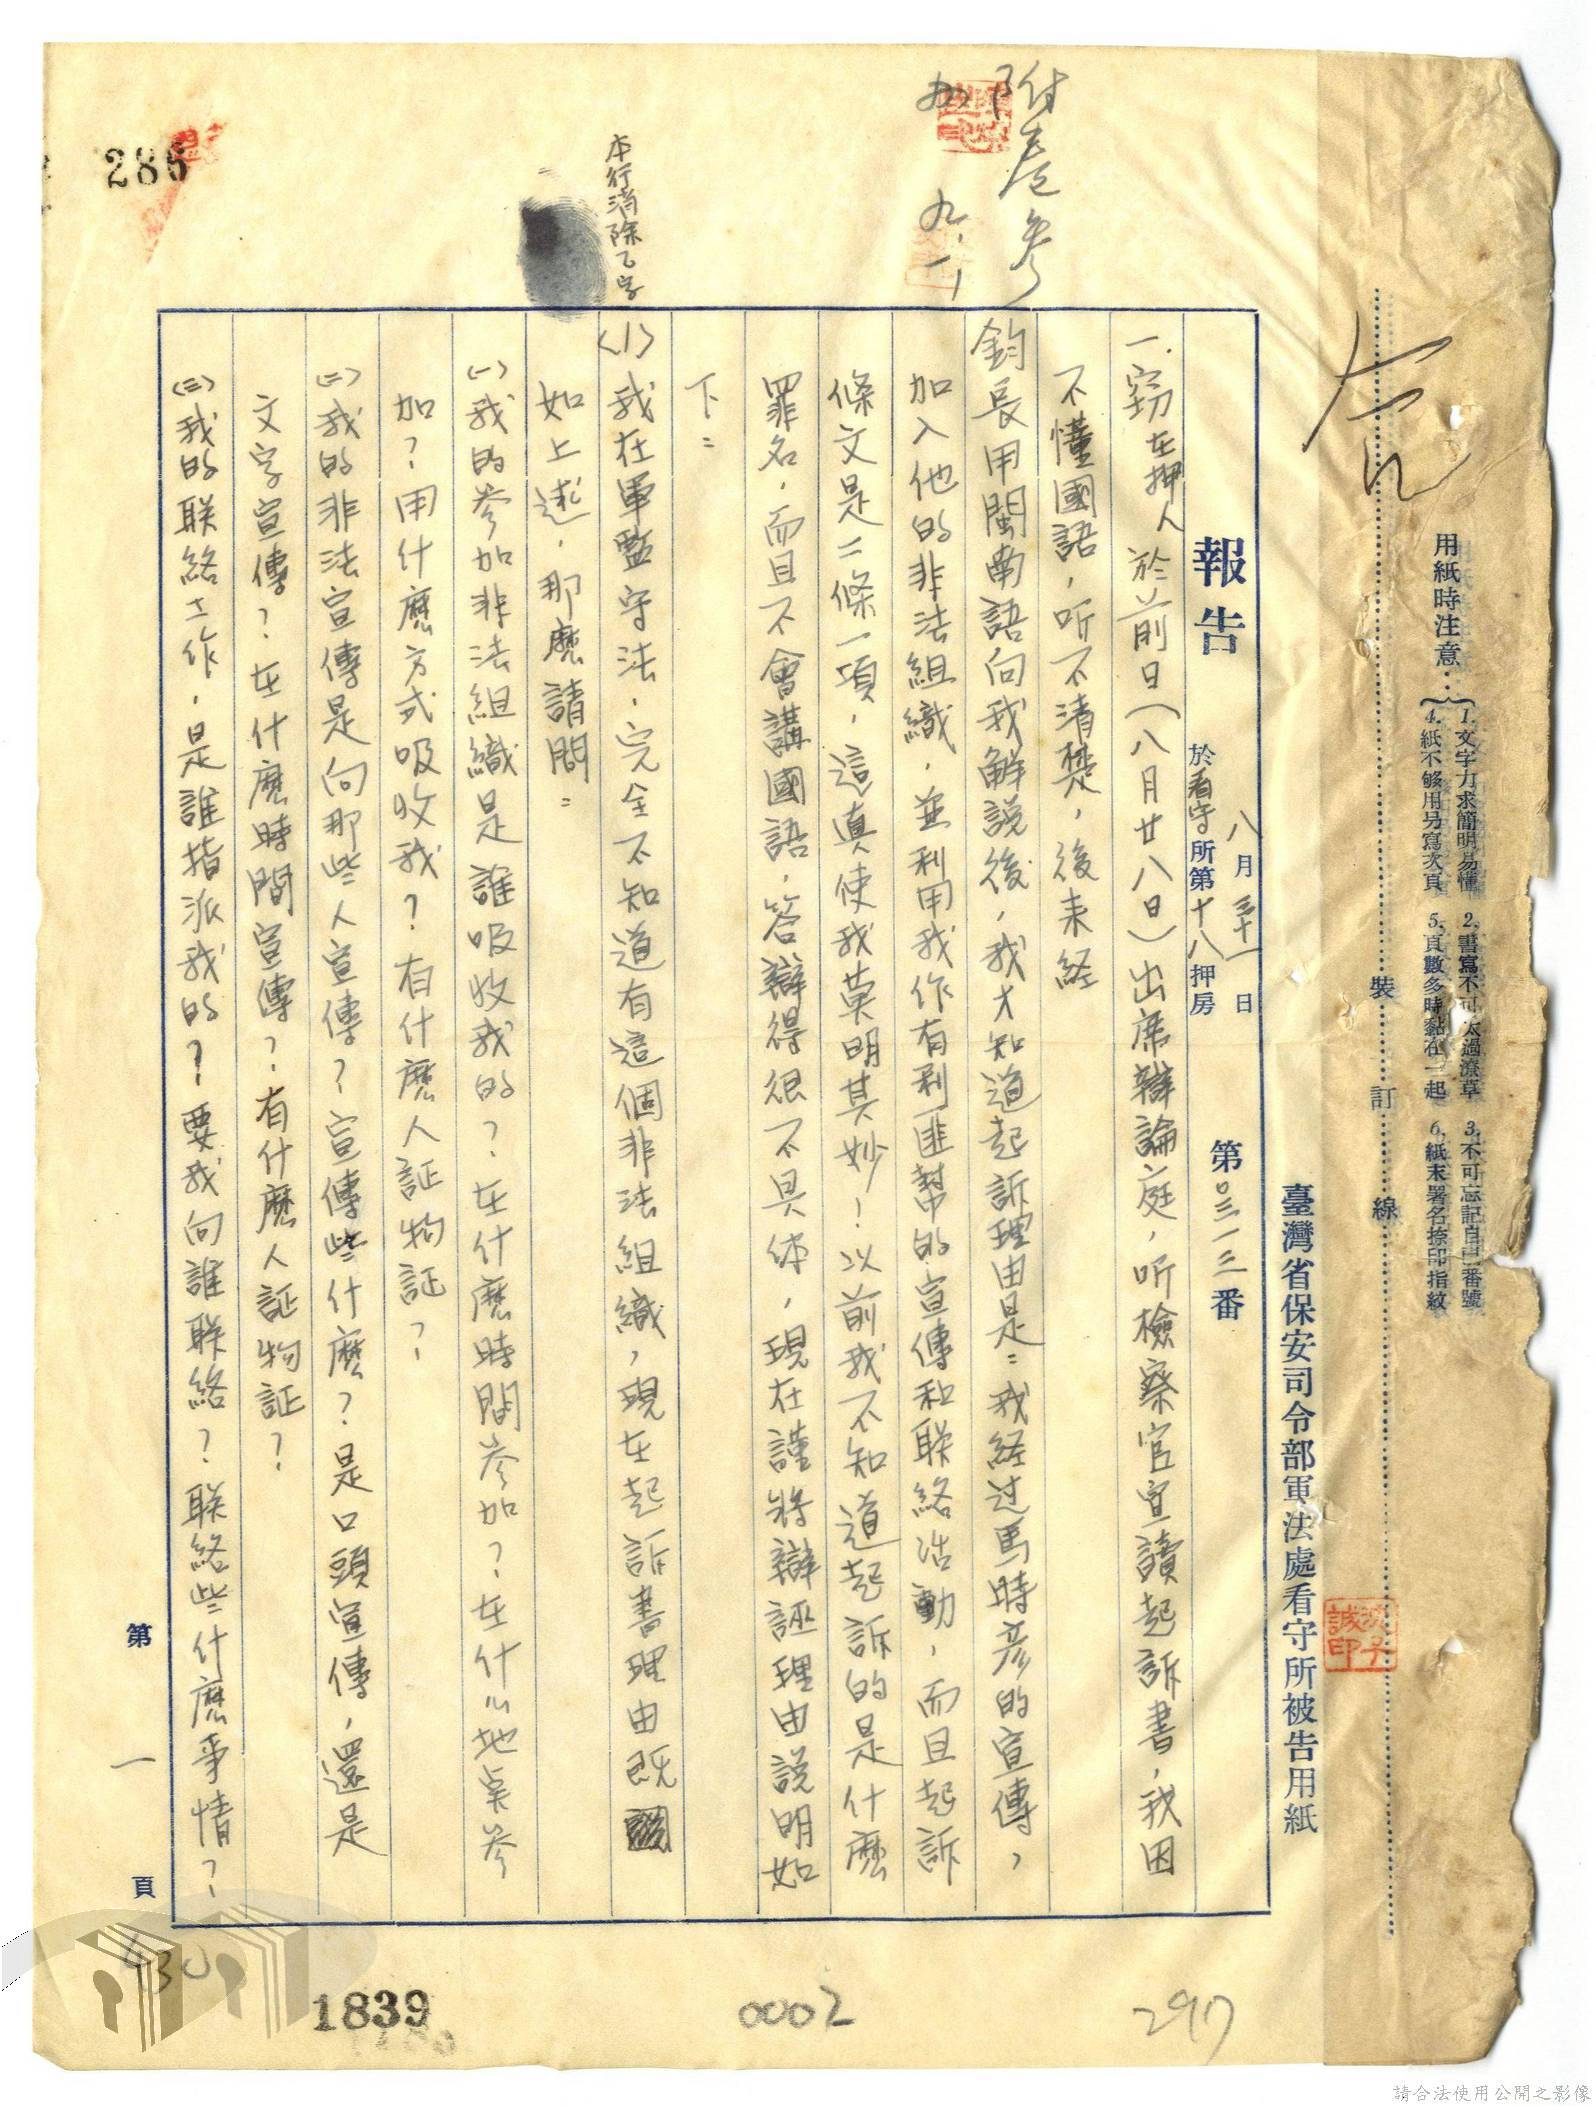 用紙時注意：
1.文字力求簡明易懂 2.書寫不可太過潦草 3.不可忘記自己番號
4.紙不够用另寫次頁 5.頁數多時黏在一起 6.紙末署名捺印指紋
裝 訂 線
臺灣省保安司令部軍法處看守所被告用紙
八月三十一日
報告 於看守所第十八押房 第0三一三番
附卷參
九.一
一.竊在押人於前日(八月廿八日)出席辯論庭，听檢察官宣讀起訴書，我因
不懂國語，听不清楚，後來経
鈞長用閩南語向我解説後，我才知道起訴理由是：我経过馬時彦的宣傳，
加入他的非法組織，並利用我作有利匪幫的宣傳和联絡活動，而且起訴
條文是二條一項，這真使我莫明其妙！以前我不知道起訴的是什麽
罪名，而且不會講國語，答辯得很不具体，現在謹將辯誣理由説明如
下：
本行消除乙字
〈1〉我在軍監守法，完全不知道有這個非法組織，現在起訴書理由既
如上述，那麽請問：
(一)我的參加非法組織是誰吸收我的？在什麽時間參加？在什么地桌參
加？用什麽方式吸收我？有什麽人証物証？
(二)我的非法宣傳是向那些人宣傳？宣傳些什麽？是口頭宣傳，還是
文字宣傳？在什麽時間宣傳？有什麽人証物証？
(三)我的联絡工作，是誰指派我的？要我向誰联絡？联絡些什麽事情？
第一頁
286
430
1839
0002
297
請合法使用公開之影像